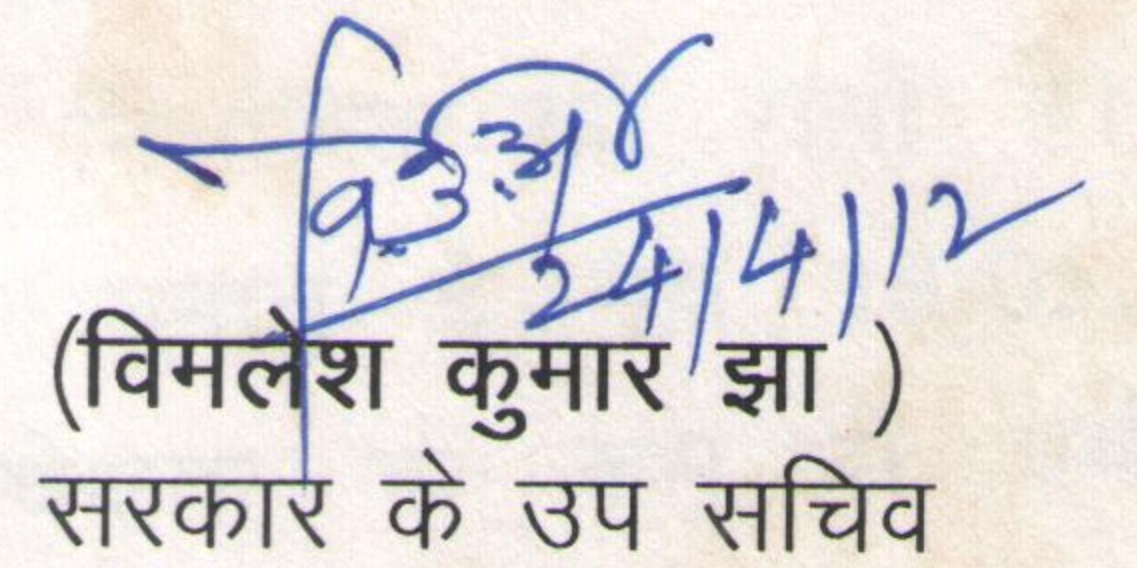 24/4/12
(विमलेश कुमार झा )
सरकार के उप सचिव